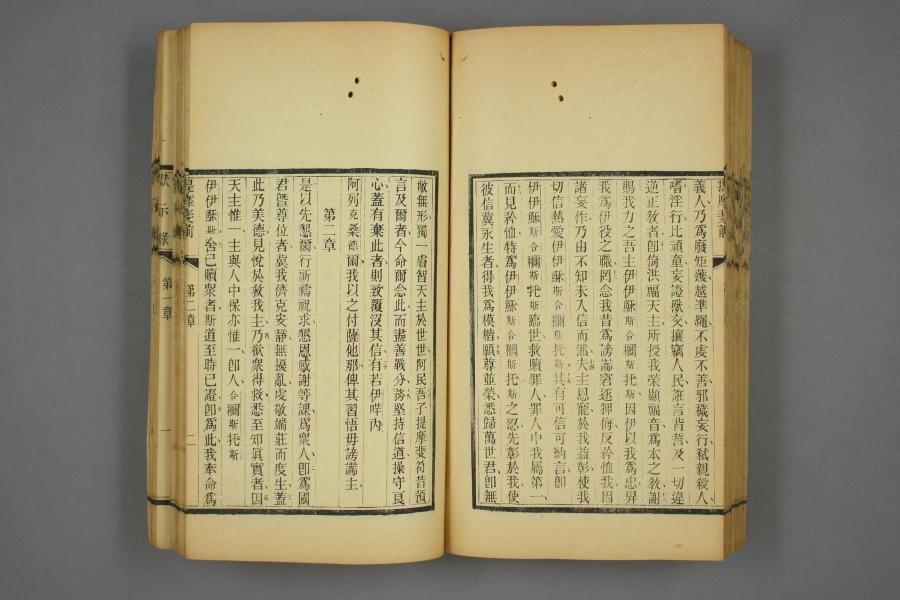 義人乃爲廢矩蔑越準繩不虔不善邪穢妄行弒親殺人
嗜淫行比頑童妄證欺妄攘竊人民誑言背誓及一切違
逆正敎者卽倚洪福天主所授我榮顯福音爲本之敎謝
賜我力之吾主伊伊穌斯合爾斯托斯因伊以我爲忠畀
我爲伊役之職罔念我昔爲謗讟窘逐狎侮反矜恤我因
諸妄作乃由不知未入信而然夫主恩寵於我益彰使我
切信熱愛伊伊穌斯合爾斯托斯其有可信可納言卽
伊伊穌斯合爾斯托斯臨世救贖罪人罪人中我屬第一
而見矜恤特爲伊伊穌斯合爾斯托斯之忍先彰於我使
彼信冀永生者得我爲模楷願尊並榮悉歸萬世君卽無
敝無形獨一睿智天主於世世阿民吾子提摩斐符昔預
言及爾者今命爾念此而盡善戰分務堅持信道操守良
心蓋有棄此者則致覆沒其信有若伊哶內
阿列克桑德爾我以之付薩他那俾其習悟毋謗讟主
第二章
是以先懇爾行祈禱祝求懇恩感謝等課爲衆人卽爲國
君曁尊位者處我儕克安靜無擾亂虔敬端莊而度生蓋
此乃美德見悅於救我主乃欲衆得救悉至知眞實者因
天主惟一主與人中保亦惟一卽人合爾斯托斯
伊伊穌斯舍己贖衆者斯道至時已證卽爲此我奉命爲
提摩斐前
第二章
二
默示錄
第一章
一